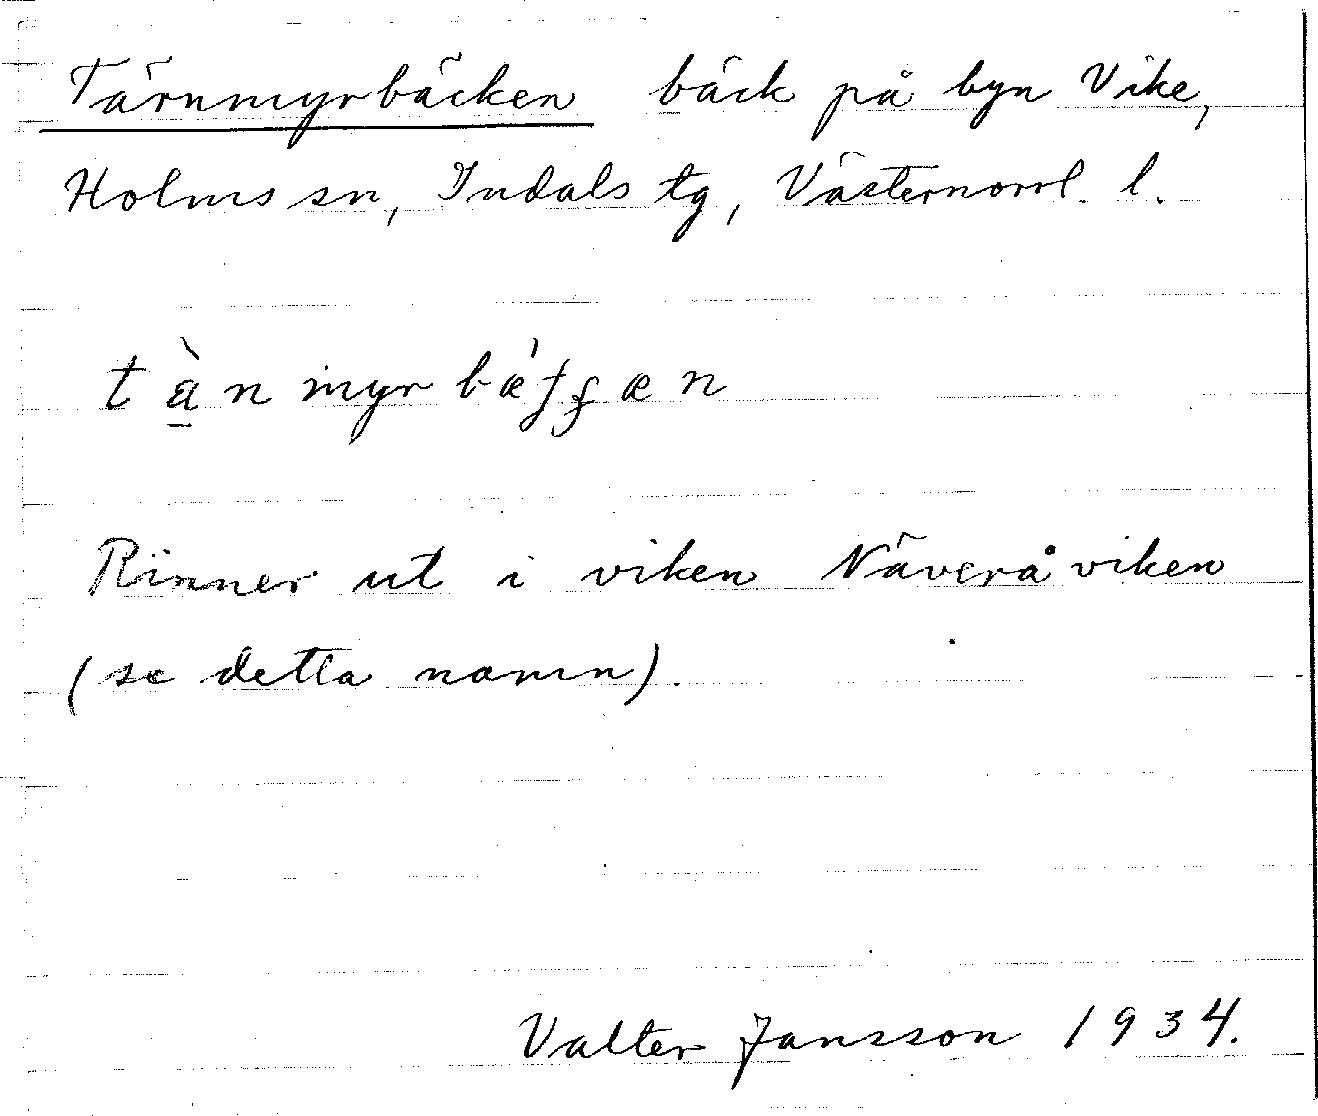 Tärnmyrbäcken bäck på byn Vike,
Holms sn, Indals tg, Västernorrl. l.
Rinner ut i viken Näveråviken
(se detta namn).
Valter Jansson 1934.